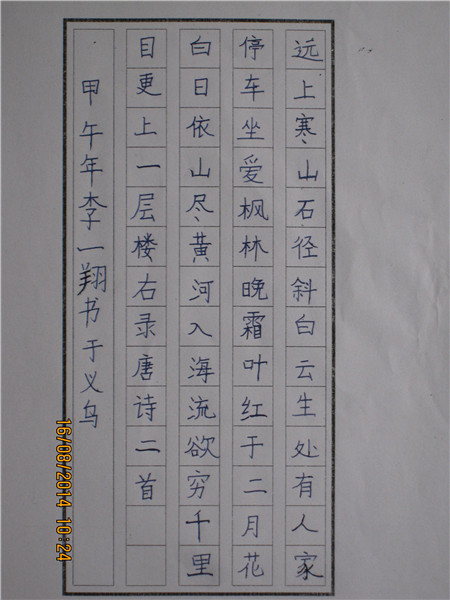 远上寒山石径斜白云生处有人家
停车坐爱枫林晚霜叶红于二月花
白日依山尽黄河入海流欲穷千里
目更上一层楼右录唐诗二首
甲午年李一翔书于义乌
16/08/2014 10:24